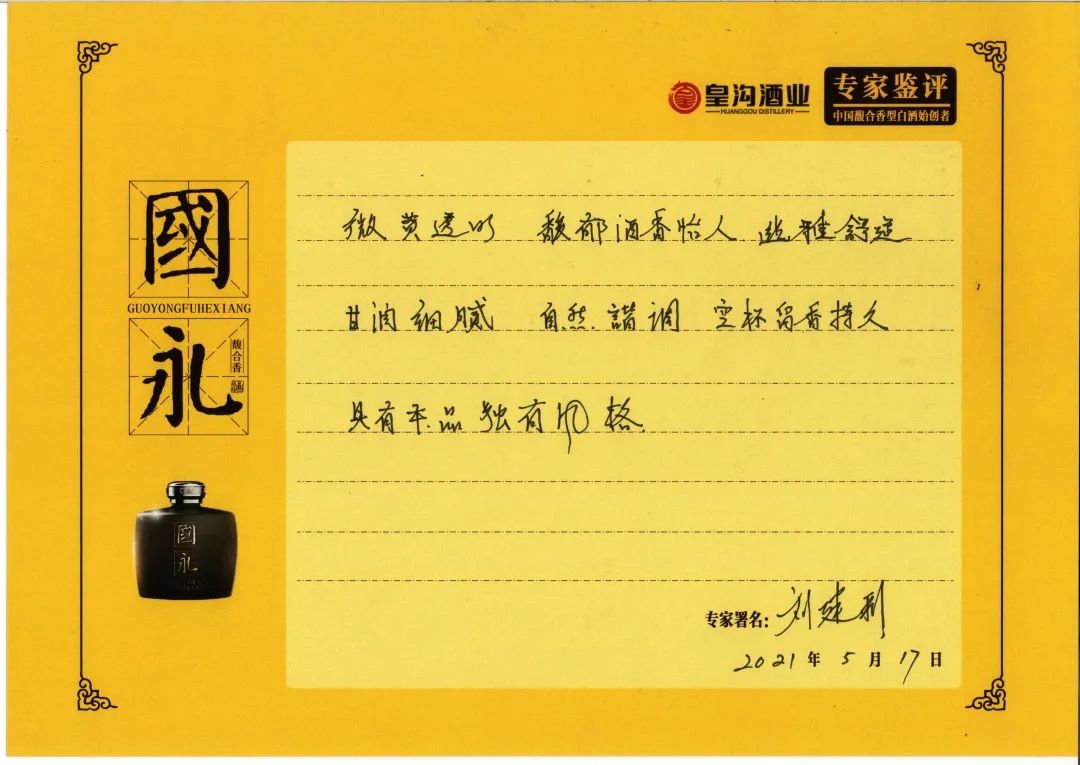 皇沟酒业
HUANGGOU DISTILLERY
专家鉴评
中国馥合香型白酒始创者
國
GUOYONGFUHEXIANG
永
馥合香
國
永
微黄透明 馥郁酒香怡人 幽雅舒适
甘润细腻 自然谐调 空杯留香持久
具有本品独有风格
专家署名: 刘建利
2021年5月17日